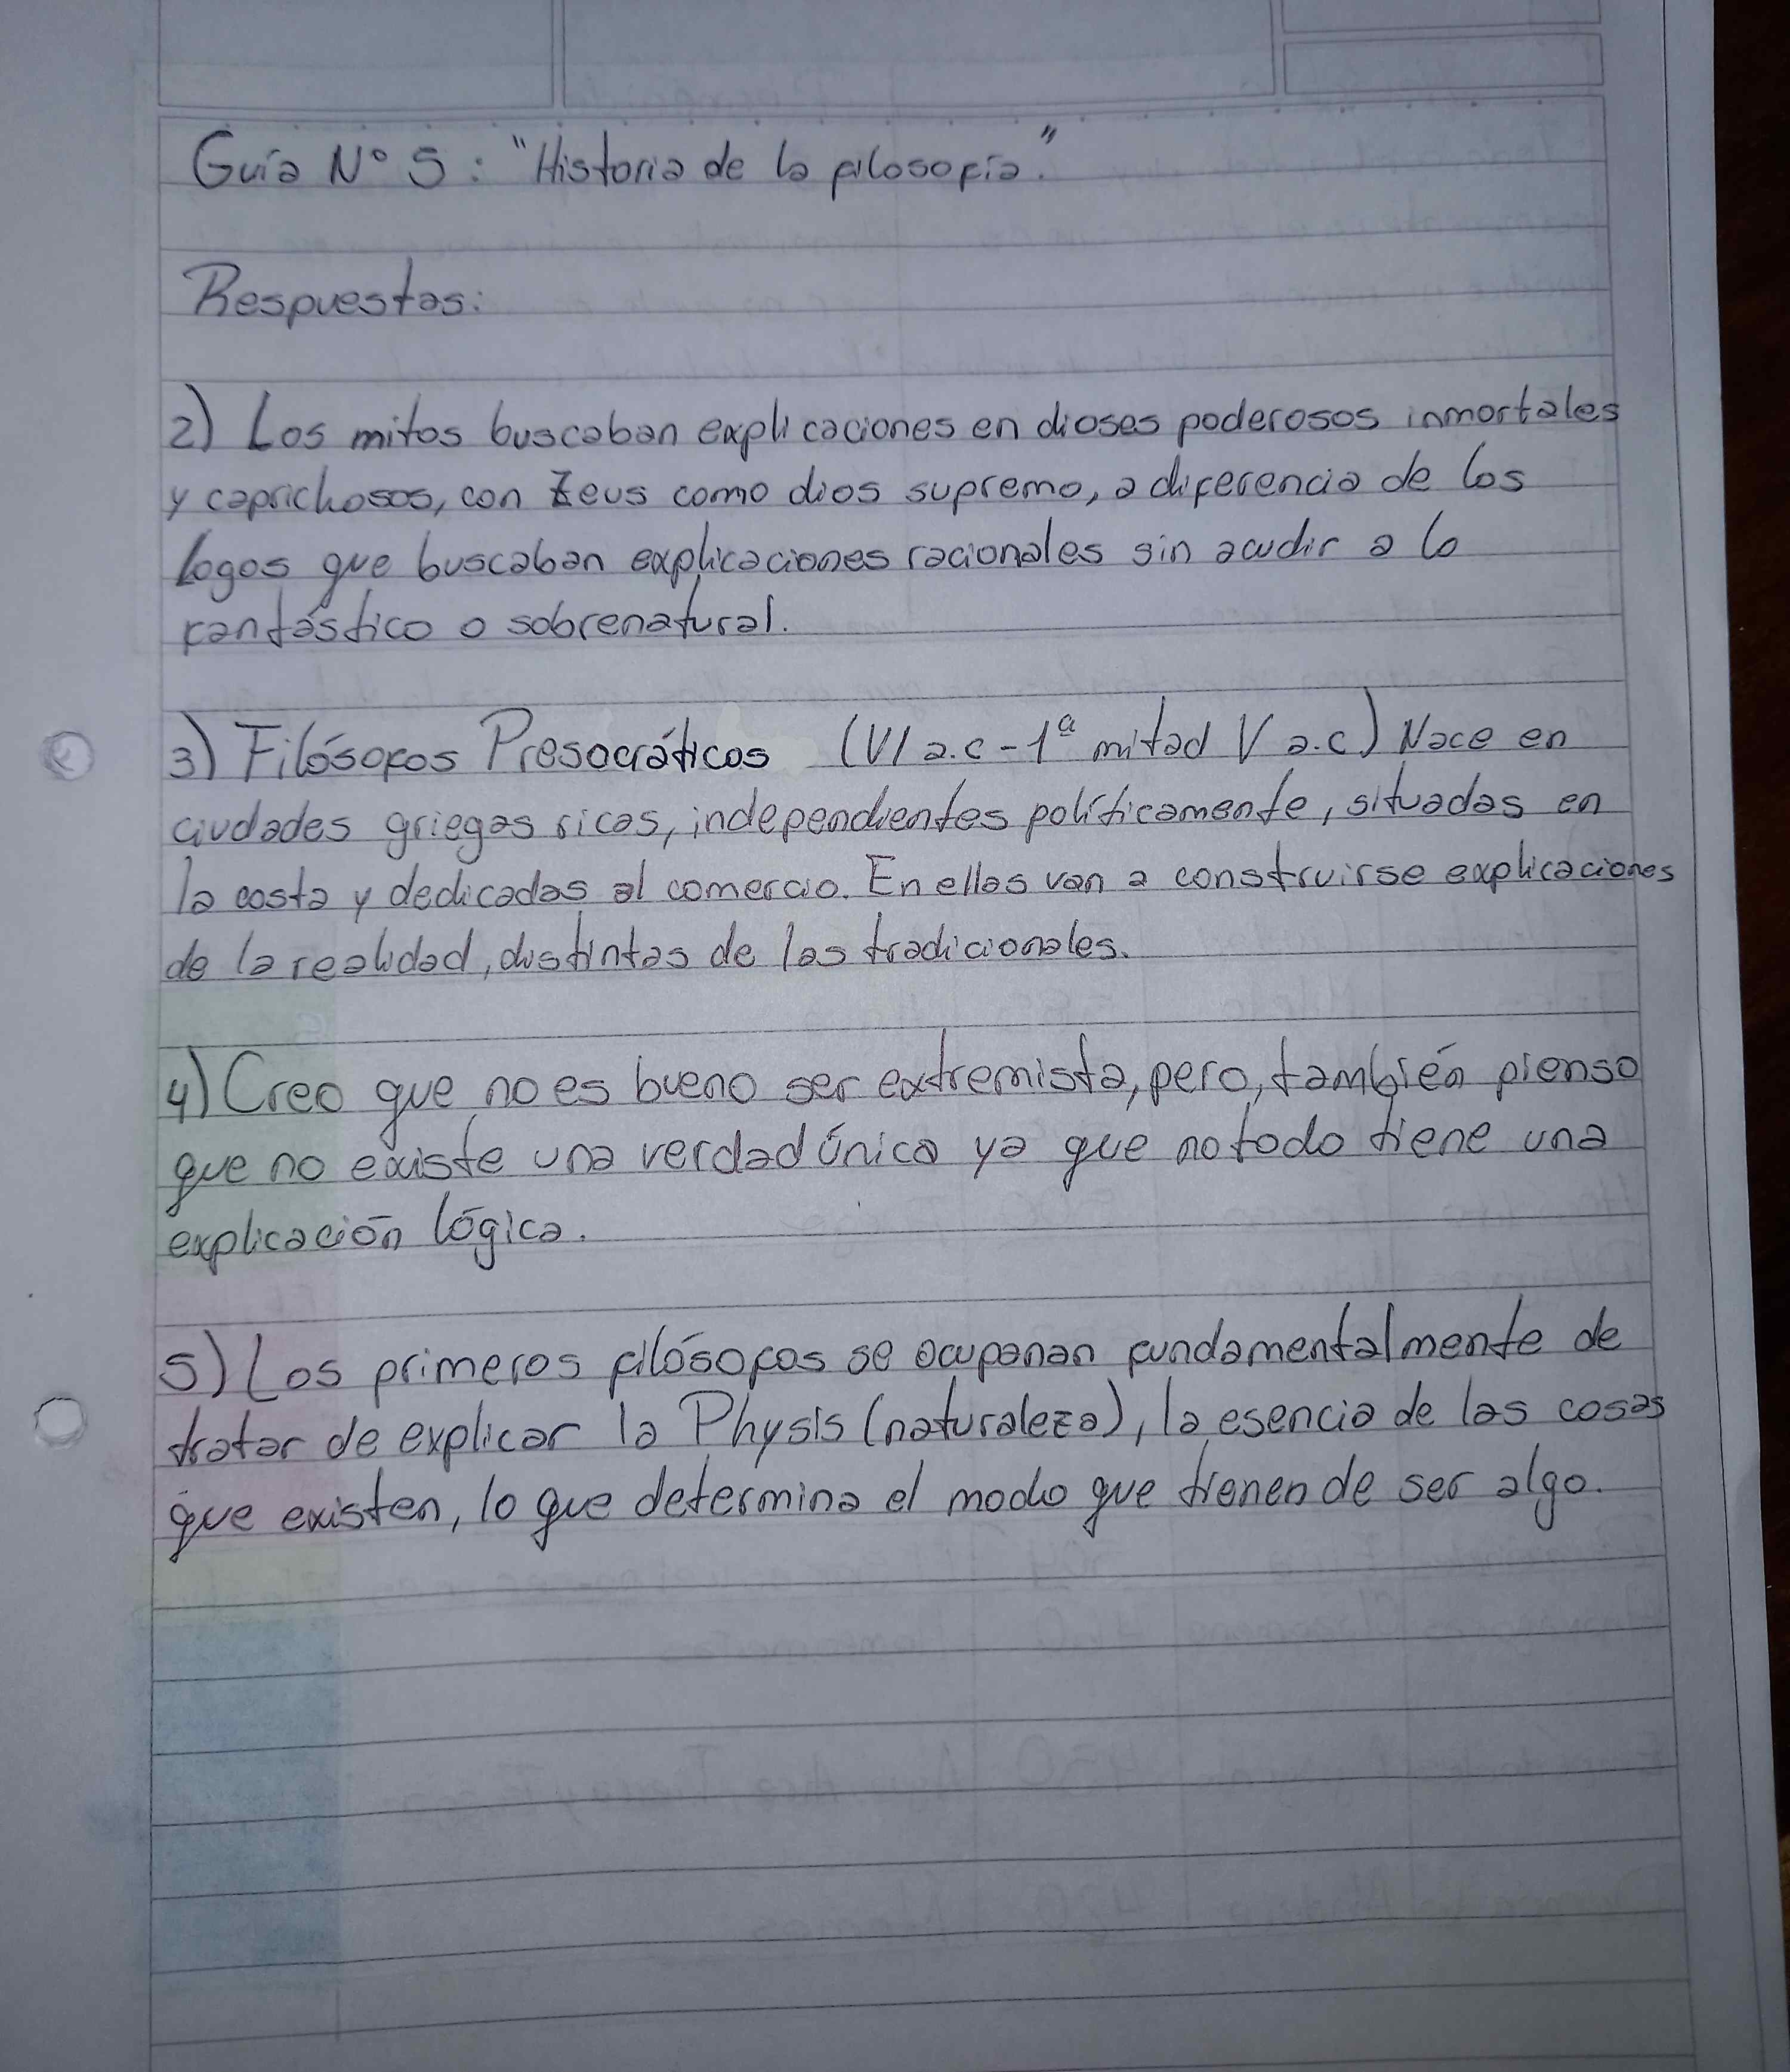 Guía N° 5: "Historia de la filosofía."
Respuestas:
2) Los mitos buscaban explicaciones en dioses poderosos inmortales
y caprichosos, con Zeus como dios supremo, a diferencia de los
logos que buscaban explicaciones racionales sin acudir a lo
fantástico o sobrenatural.
3) Filósofos Presocráticos (VI a.c - 1ª mitad V a.c) Nace en
ciudades griegas ricas, independientes políticamente, situadas en
la costa y dedicadas al comercio. En ellas van a construirse explicaciones
de la realidad, distintas de las tradicionales.
4) Creo que no es bueno ser extremista, pero, también pienso
que no existe una verdad única ya que no todo tiene una
explicación lógica.
5) Los primeros filósofos se ocuparían fundamentalmente de
tratar de explicar la Physis (naturaleza), la esencia de las cosas
que existen, lo que determina el modo que tienen de ser algo.